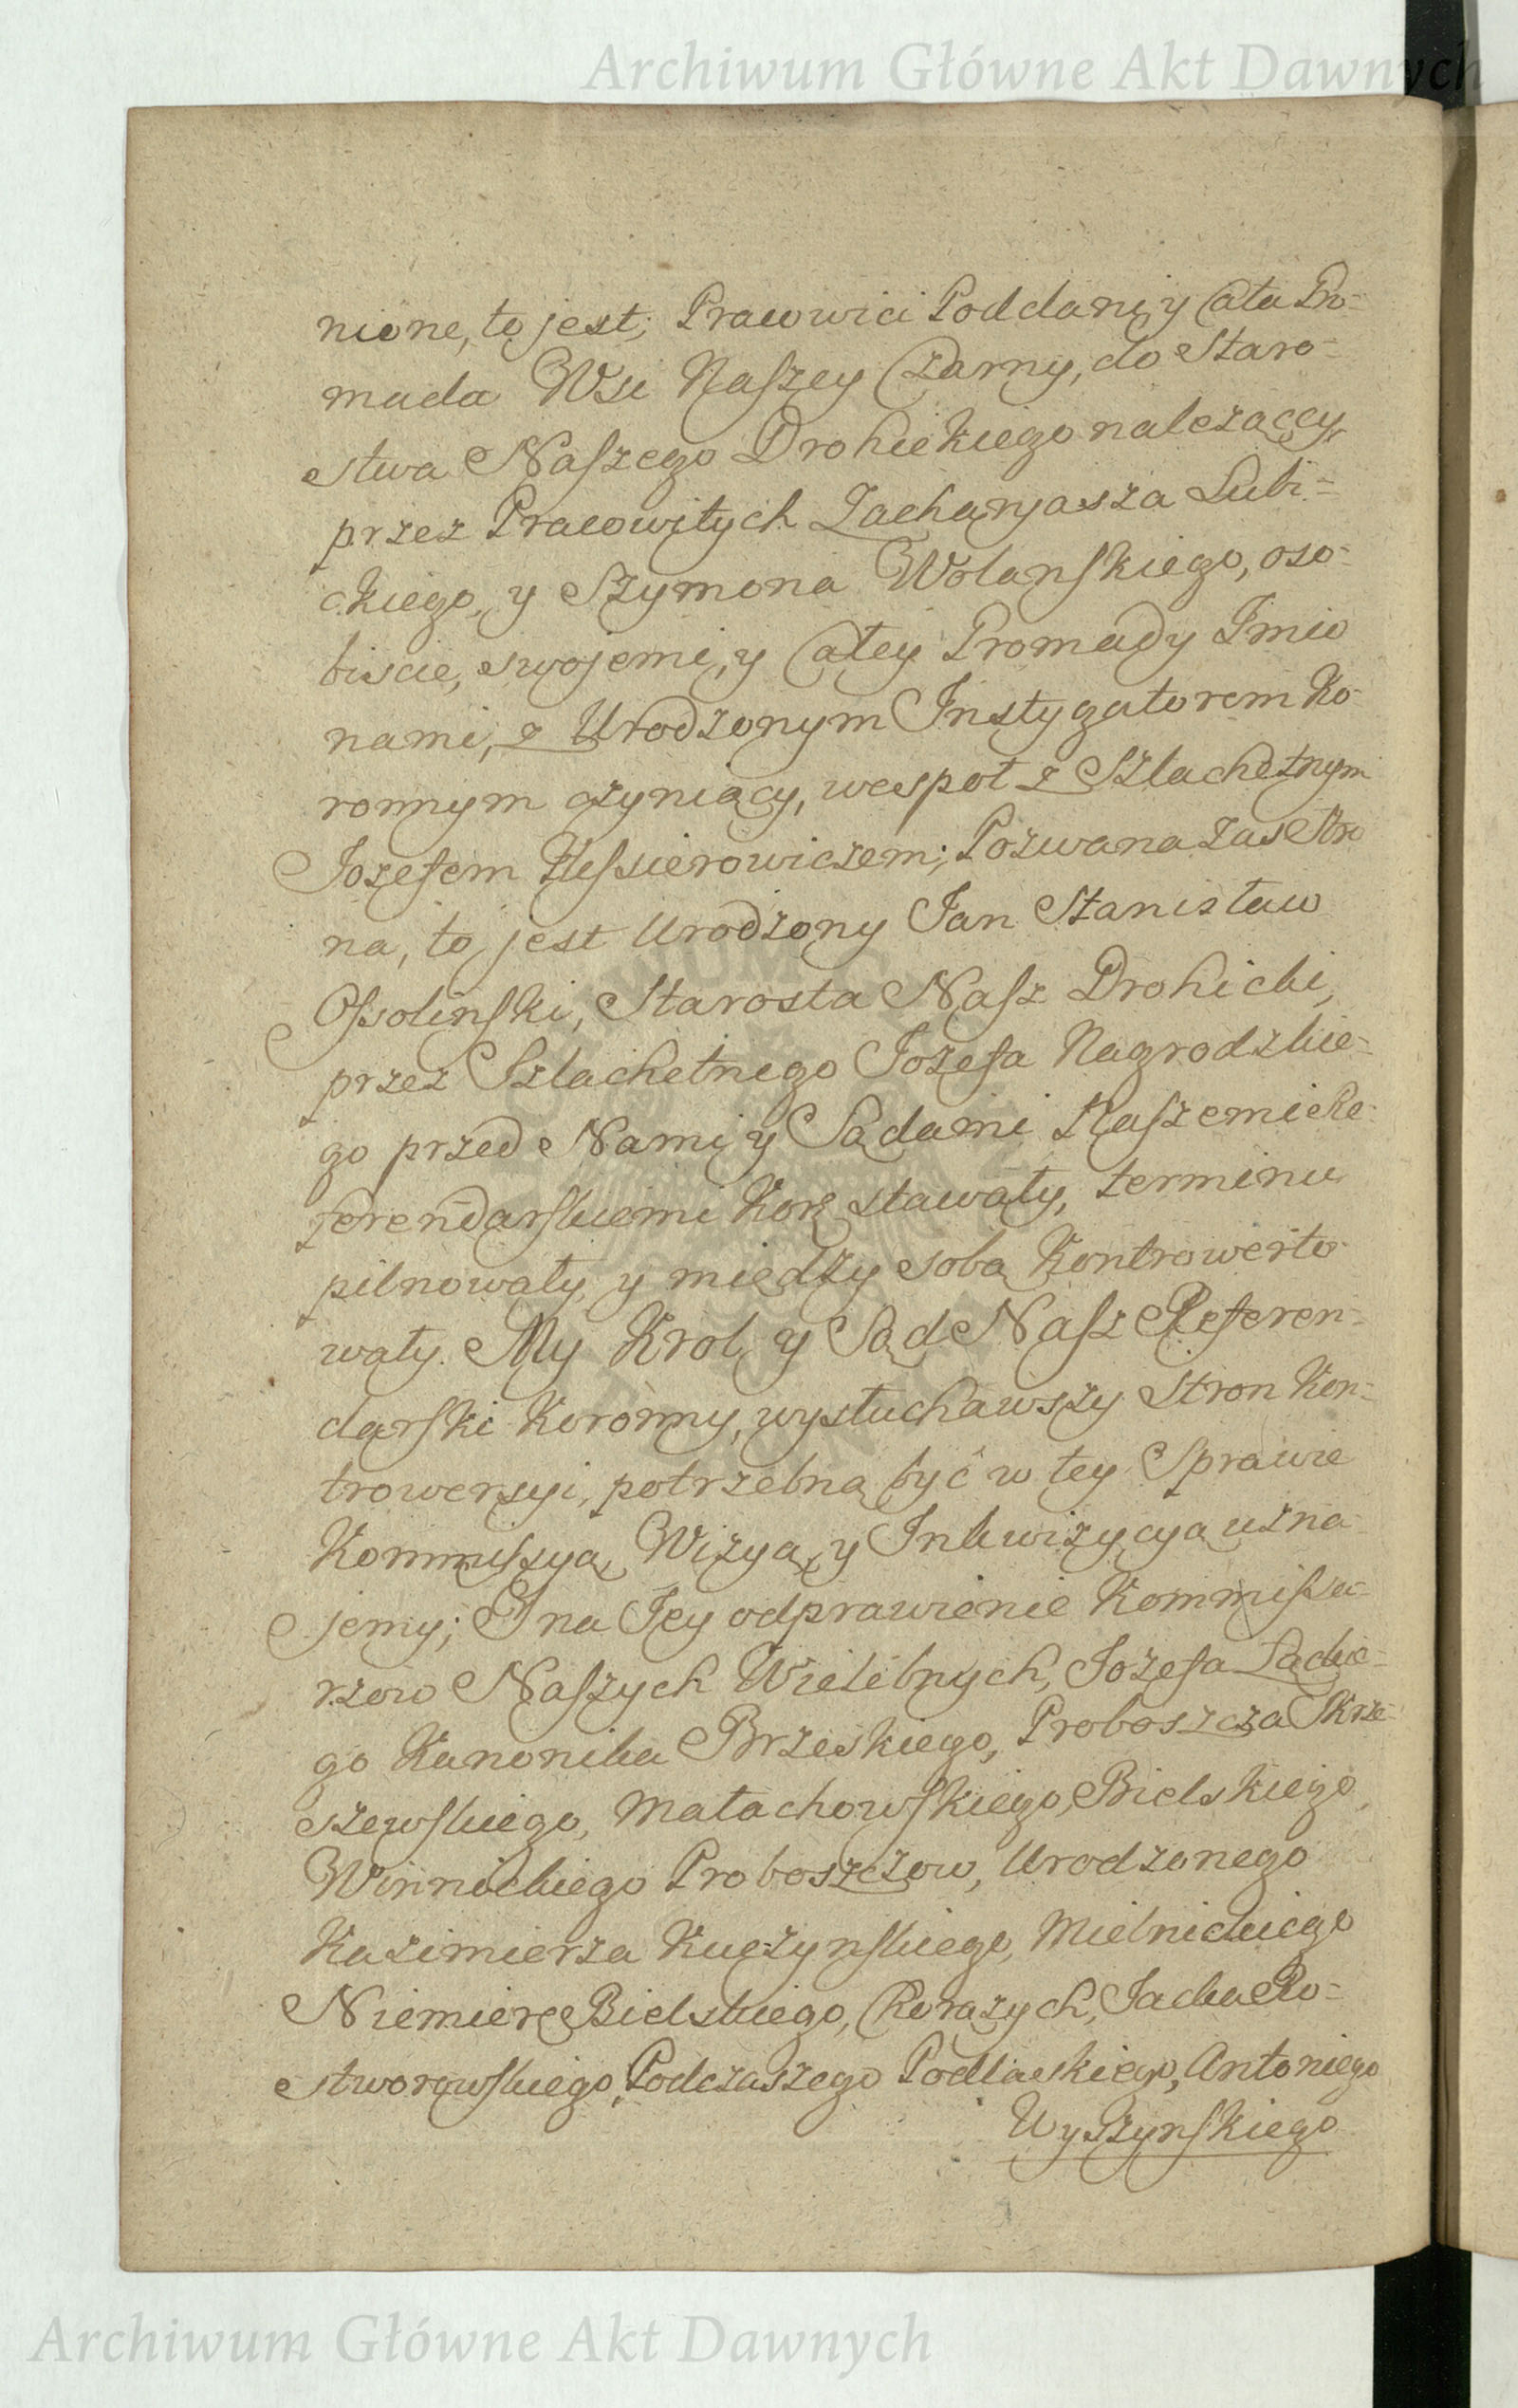 Archiwum Główne Akt Dawnych
nione, to jest; Pracowici Poddani y Cała Gro-
mada Wsi Naszey Czarny, do Staro-
stwa Naszego Drohickiego nalezączy
przez Pracowitych Zacharyasza Lubi-
ckiego, y Szymona Wolanskiego, oso-
biscie, swojemi, y Całey Gromady Imio
nami, z Urodzonym Instygatorem Ko-
ronnym czyniący, wespoł z Szlachetnym
Jozefem Pozwana zas Stro
na, to jest Urodzony Jan Stanisław
Ossolinski, Starosta Nasz Drohicki,
przez Szlachetnego Jozefa Nagrodzkie-
go przed Nami y Sądami Naszemi Re-
ferendarskiemi Kor: stawały, terminu
pilnowały, y między sobą Kontrowerto-
wały. My Krol y Sąd Nasz Referen-
darski Koronny, wysłuchawszy Stron Kon-
trowersyi, potrzebną być w tey Sprawie
Kommissyą, Wizyą, y Inkwizycyą uzna-
jemy; I na Jey odprawienie Kommissa-
rzow Naszych Wielebnych, Jozefa
go Kanonika Brzeskiego, Proboszcza Skrze-
szewskiego, Małachowskiego, Bielskiego,
Winnickiego Proboszczow, Urodzonego
Kazimierza Kuczynskiego, Mielnickiego
Niemierę Bielskiego, Chorązych, Jacka Ro-
stworowskiego, Podczaszego Podlaskiego, Antoniego
Wyszynskiego
Archiwum Główne Akt Dawnych